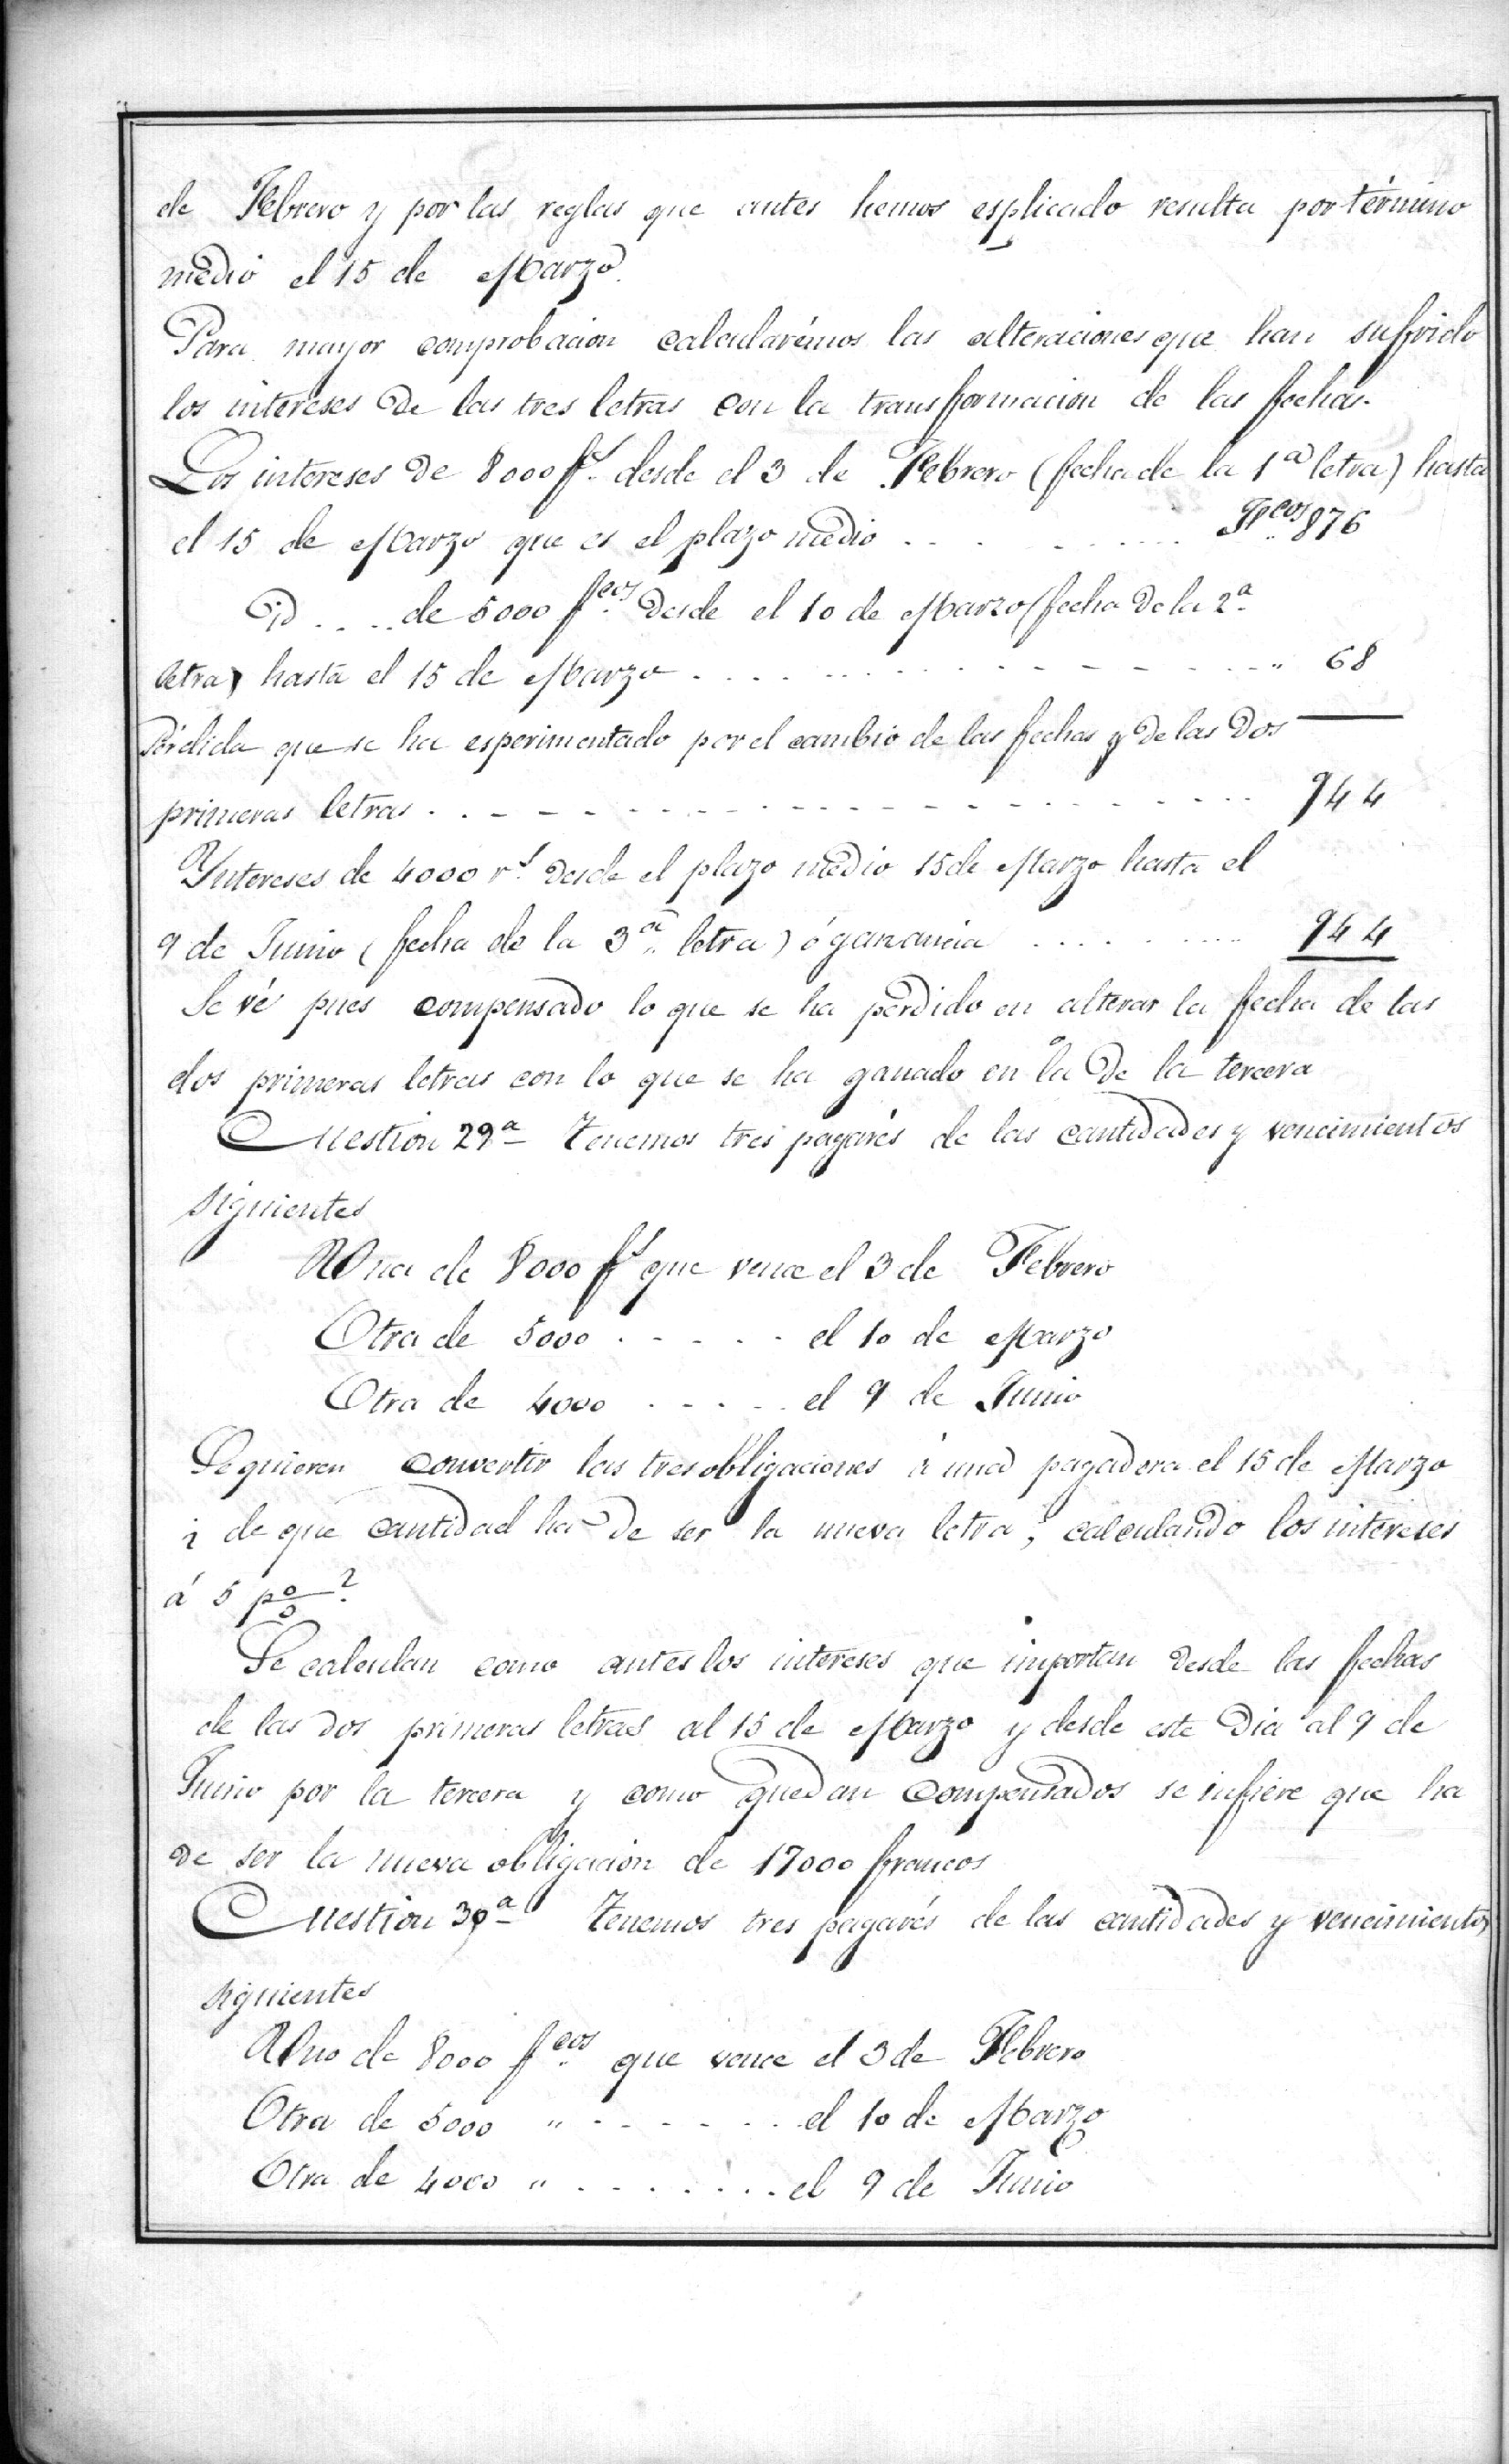 de Febrero y por las reglas que antes hemos esplicado resulta por término
medio el 15 de Marzo.
Para mayor comprobacion calcularémos las alteraciones que han suffrido
los intereses de las tres letras con la transformacion de las fechas.
Los intereses de 8000 fs. desde el 3 de Febrero (fecha de la 1ª letra) hasta
el 15 de Marzo que es el plazo medio . . . . . . . . Fcos 876
id . . . . de 5000 fcos desde el 10 de Marzo (fecha de la 2ª
letra) hasta el 15 de Marzo . . . . . . . . . . . . . " 68
Pérdida que se ha esperimentado por el cambio de las fechas y de las dos
primeras letras . . . . . . . . . . . . . . . . . 944
Yntereses de 4000 rs. desde el plazo medio 15 de Marzo hasta el
9 de Junio (fecha de la 3ª letra) ó ganancia . . . . . . . . 944
Se vé pues compensado lo que se ha perdido en alterar la fecha de las
dos primeras letras con lo que se ha ganado en la de la tercera
Cuestion 29ª Tenemos tres pagarés de las cantidades y vencimientos
siguientes
Una de 8000 fs que vence el 3 de Febrero
Otra de 5000 . . . . . el 10 de Marzo
Otra de 4000 . . . . . el 9 de Junio
Se quieren convertir las tres obligaciones á una pagadera el 15 de Marzo
¿ de que cantidad ha de ser la nueva letra, calculando los intereses
á 5 p%?
Se calculan como antes los intereses que importan desde las fechas
de las dos primeras letras al 15 de Marzo y desde este dia al 9 de
Junio por la tercera y como quedan compensados se infiere que ha
de ser la nueva obligacion de 17000 francos
Cuestion 30ª Tenemos tres pagarés de las cantidades y vencimientos
siguientes
Uno de 8000 fcos que vence el 3 de Febrero
Otra de 5000 " . . . . . . el 10 de Marzo
Otra de 4000 " . . . . . . . el 9 de Junio